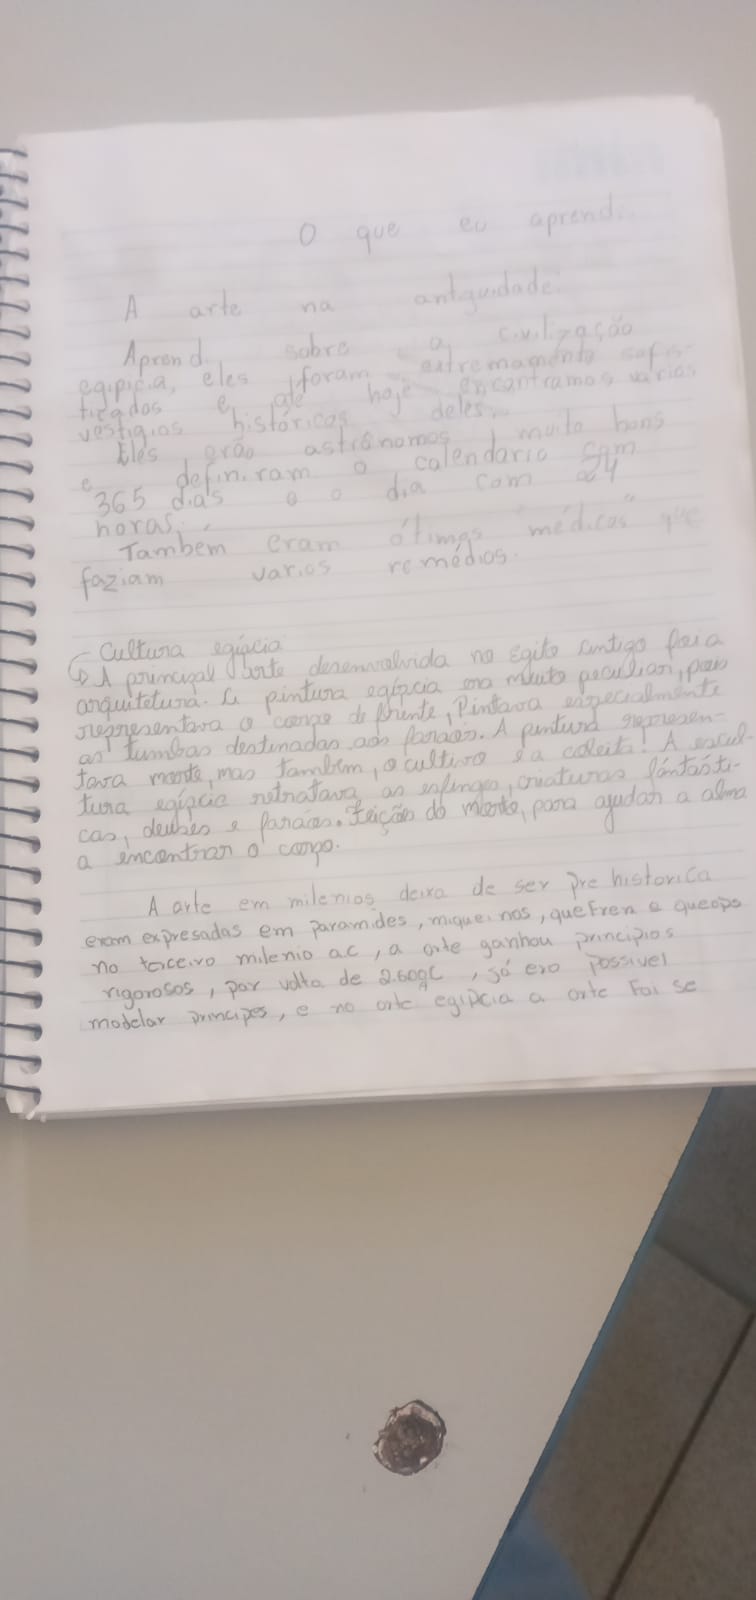 O que eu aprendi
A arte na antguidade.
Aprendi sobre a civilização
egipicia, eles foram extremamente sofis-
ticados e até hoje encontramos varios
vestígios históricos deles.
Eles erão astrônomos muito bons
e definiram o calendario com
365 dias e o dia com 24
horas.
Também eram ótimos "médicos" que
faziam varios remédios.
Cultura egípcia
A principal arte desenvolvida no Egito antigo foi a
arquitetura. A pintura egípcia era muito peculiar, pois
representava o corpo de frente, Pintava especialmente
as tumbas destinadas aos faraós. A pintura represen-
tava morte, mas também, o cultivo e a colheita! A escul-
tura egípcia retratava as esfinges, criaturas fántásti-
cas, deuses e faraós. Feição do morto, para ajudar a alma
a encontrar o corpo.
A arte em milenios deixa de ser pre historica
eram expresadas em paramides, miqueinos, quefren e queops
no terceiro milenio ac, a arte ganhou principios
rigorosos, por volta de 2.600 aC, só era possivel
modelar principes, e na arte egipcia a arte foi se